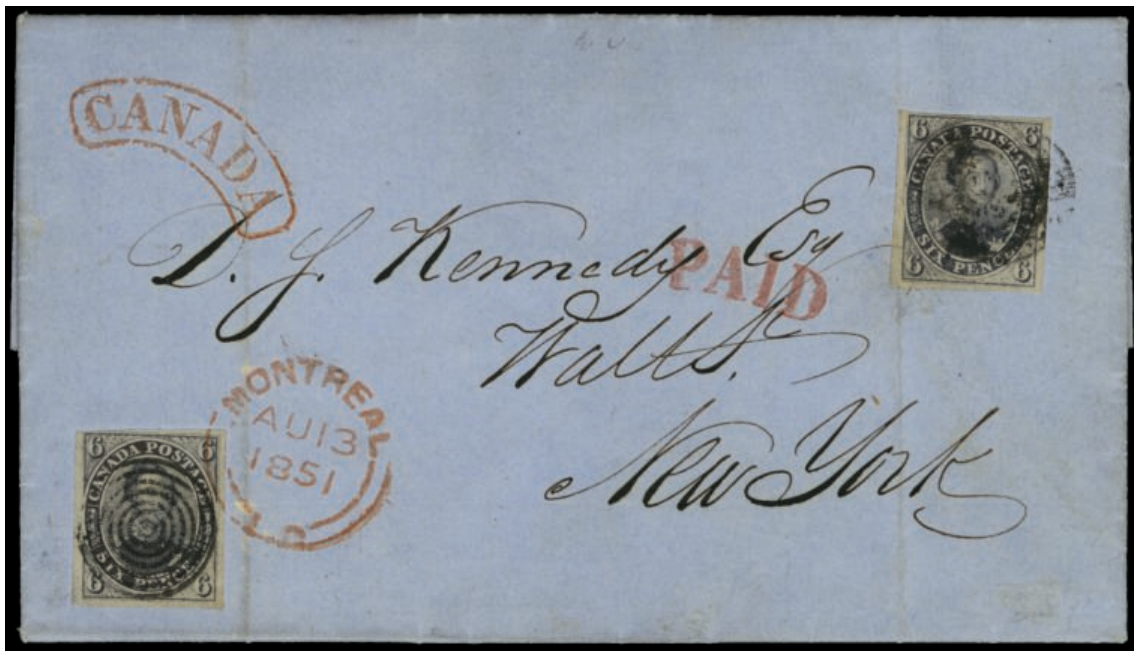 CANADA
6 CANADA POSTAGE 6
6 SIX PENCE 6
D. J. Kennedy Esq
PAID
Wall St.
New York
MONTREAL
AU 13
1851
L.C
6 CANADA POSTAGE 6
6 SIX PENCE 6